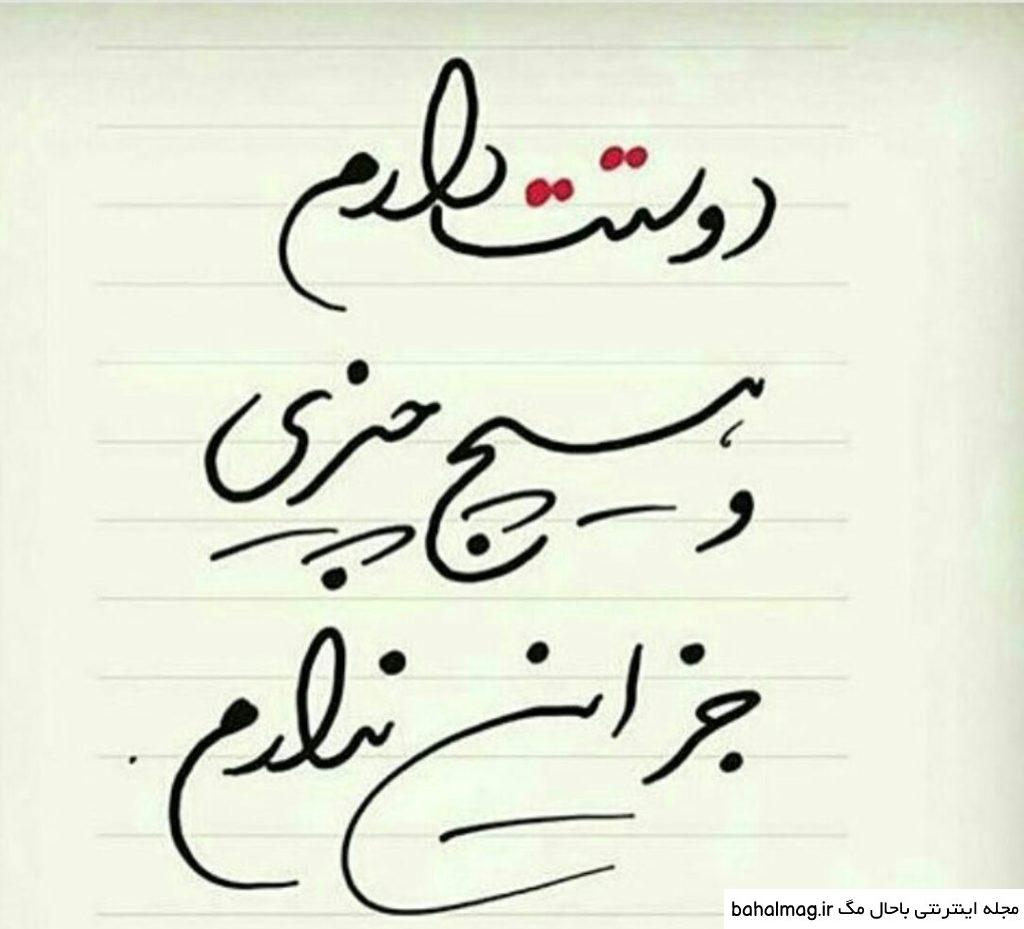 دوستت دارم
و هیچ چیزی
جز این ندارم
مجله اینترنتی باحال مگ bahalmag.ir